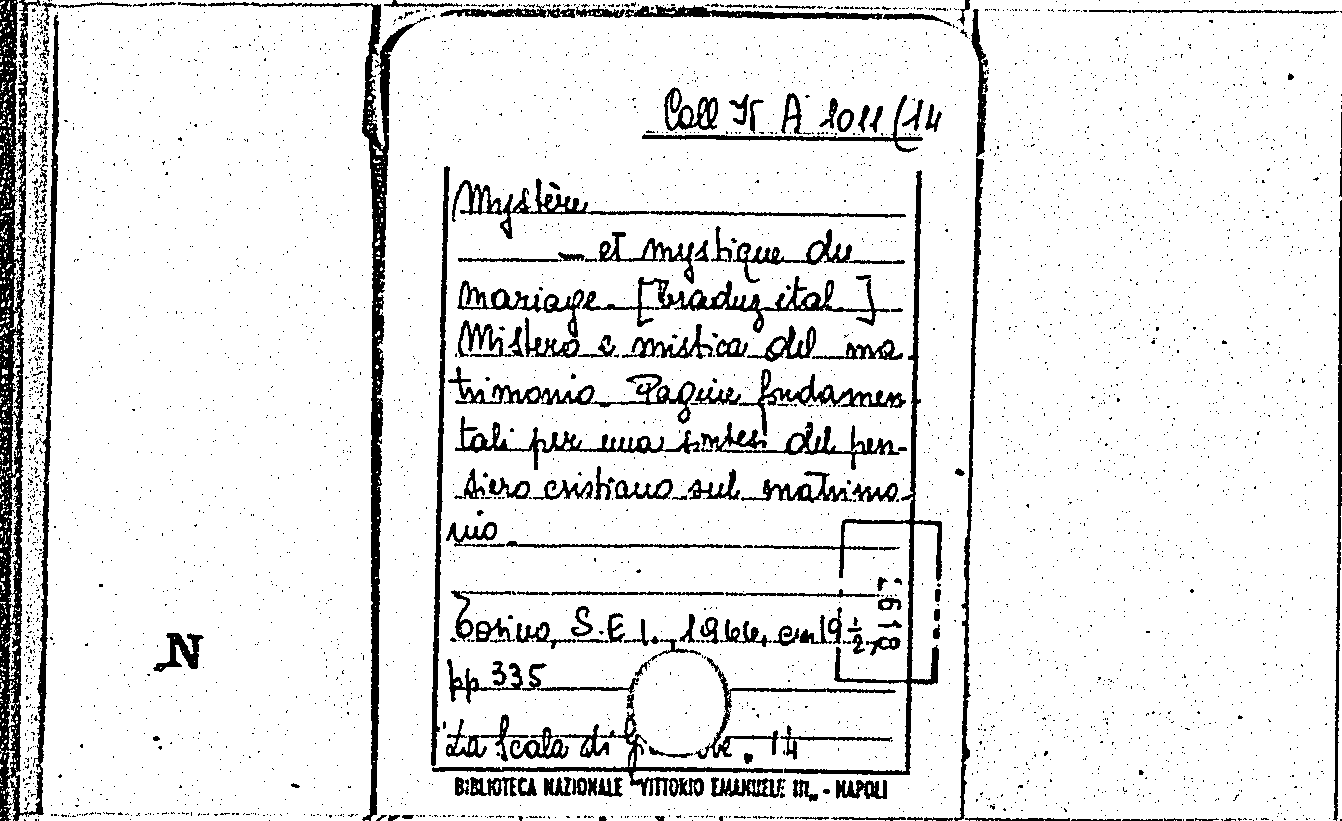 Coll. It A 2011/14
Mystère
— et mystique du
mariage. [Traduz ital.]
Mistero e mistica del ma-
trimonio. Pagine fondamen-
tali per una sintesi del pen-
siero cristiano sul matrimo-
nio.
Torino, S.E.I. 1966, cm 19 ½
pp. 335
La Scala di . 14
BIBLIOTECA NAZIONALE "VITTORIO EMANUELE III„ - NAPOLI
N